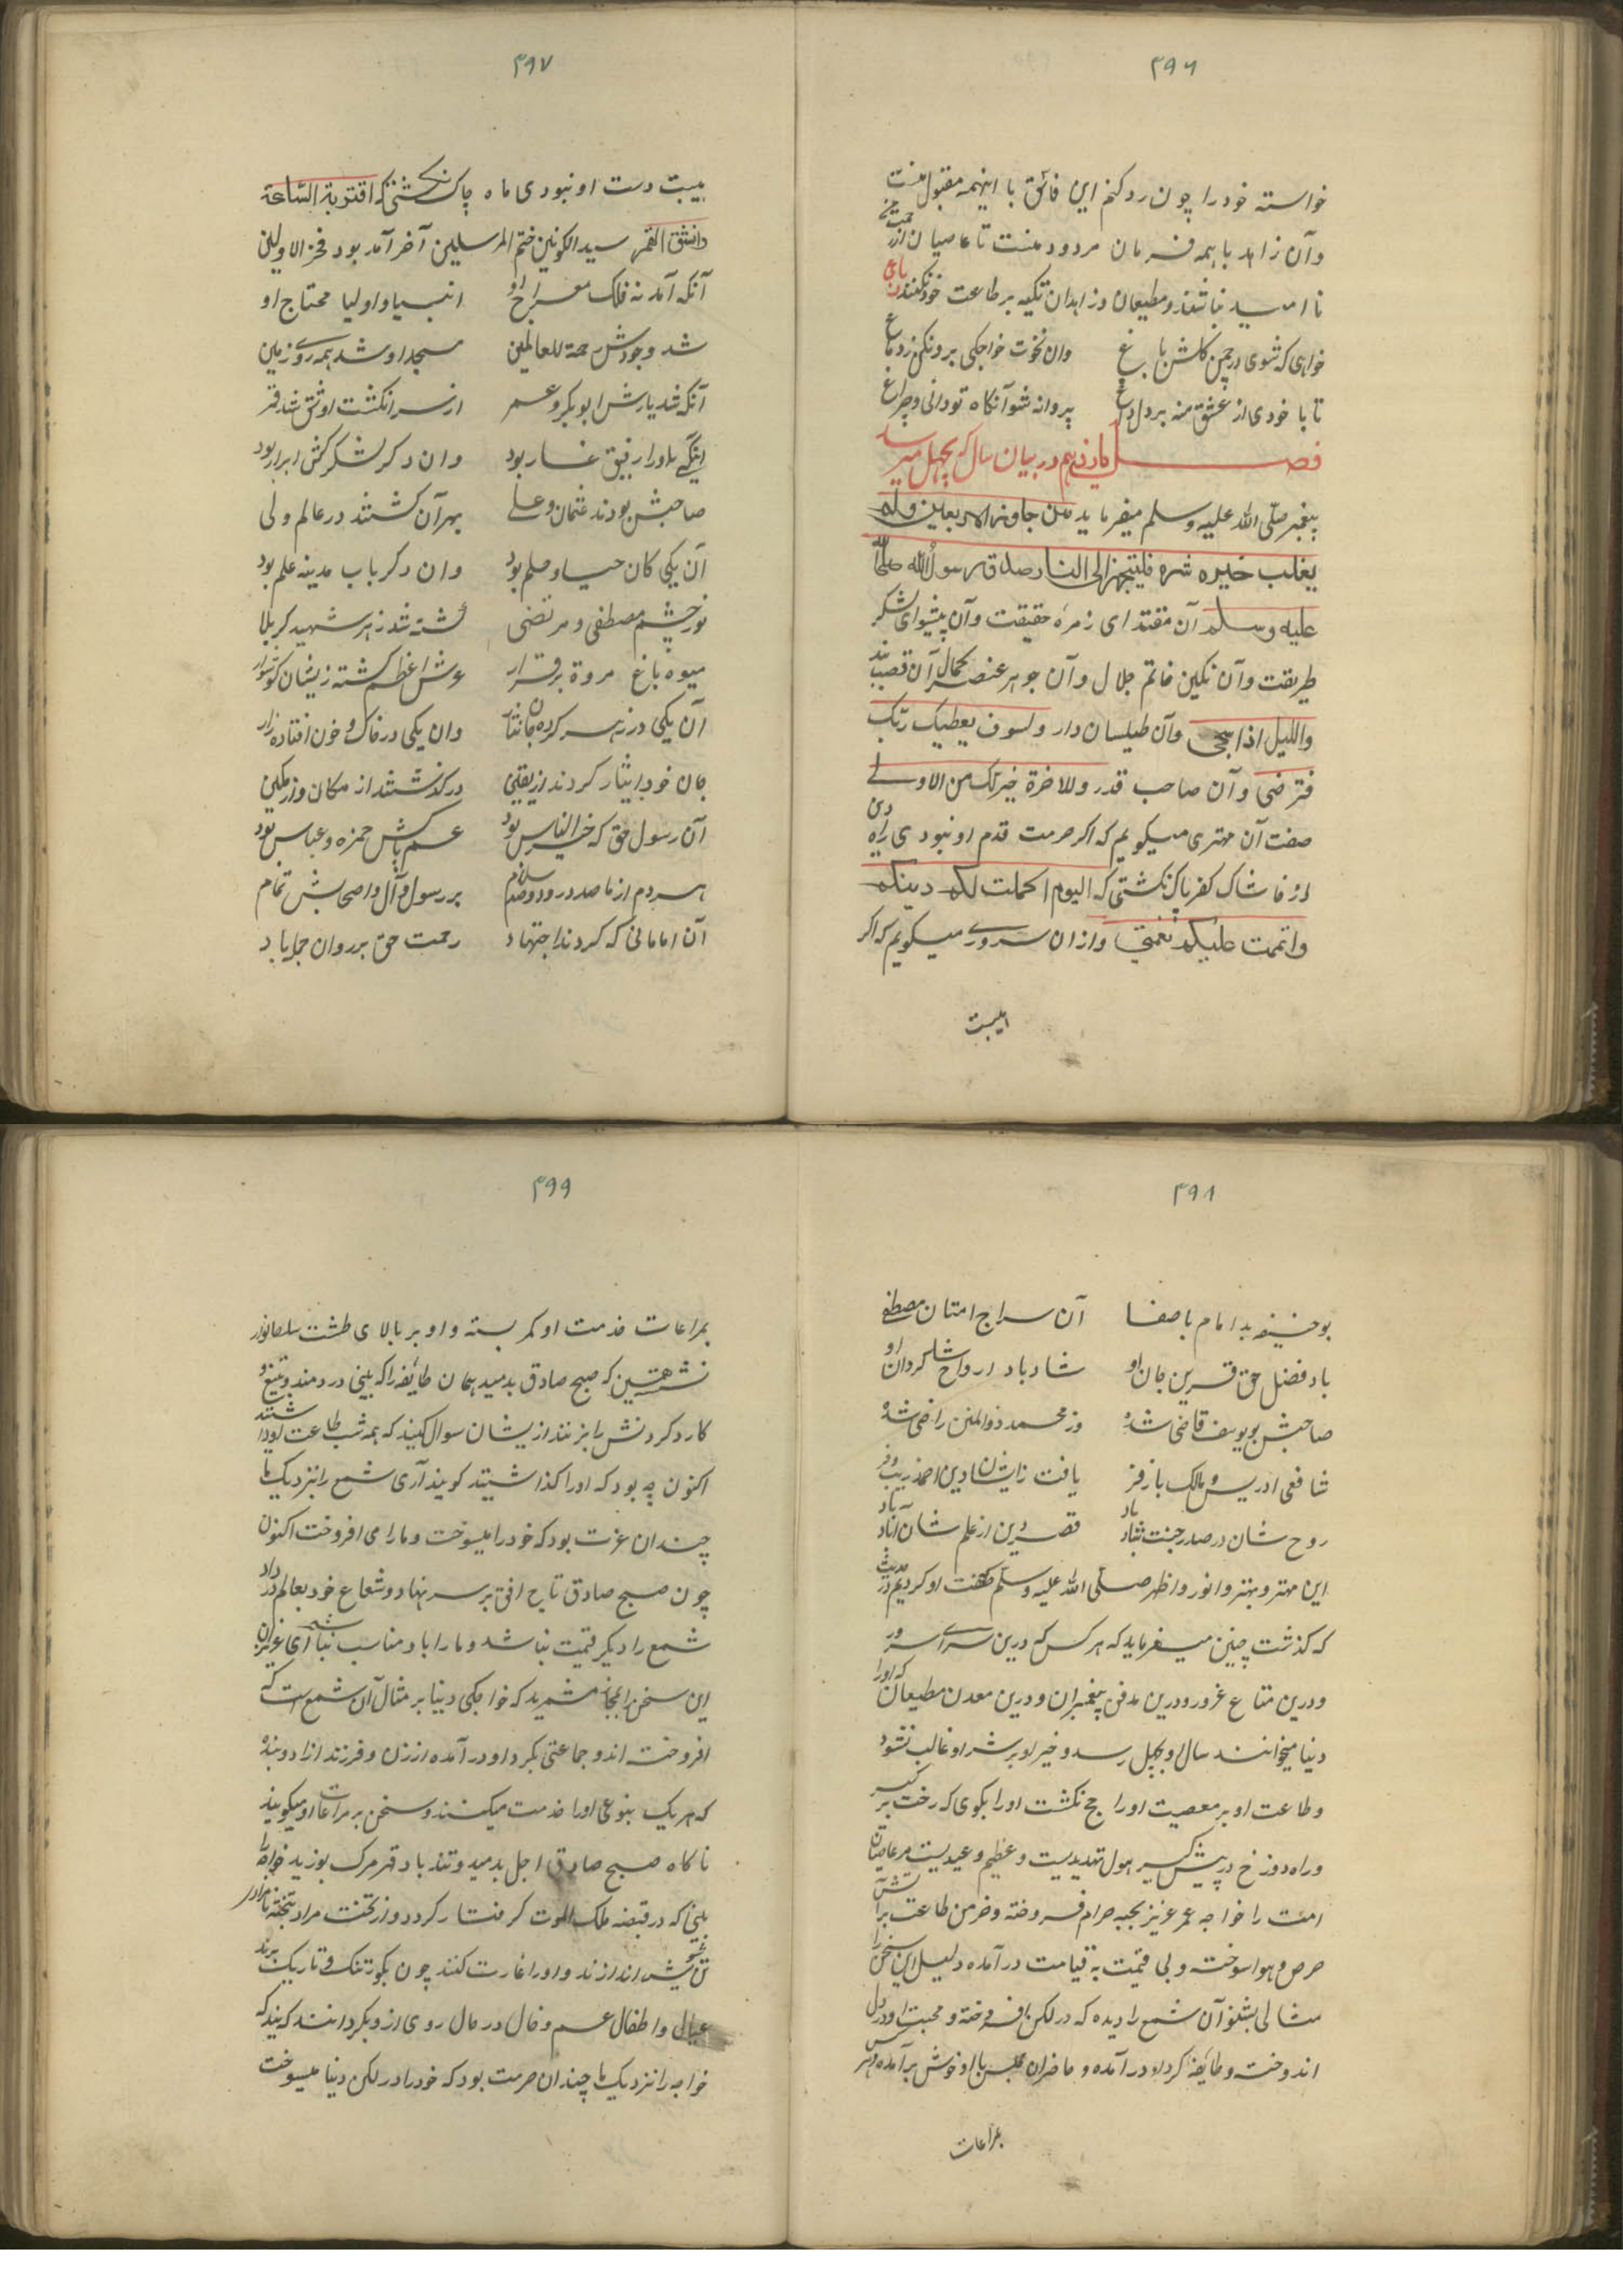 ۴۹۶
خواسته خود را چون رد کنم این فاسق با اینهمه مقبول منست
وآن زاهد با همه فرمان مردود منست تا عاصیان از رحمت من
نا امید نباشند و مطیعان و زاهدان تکیه بر طاعت خود نکنند رباعی
خواهی که شوی در چمن گلشن باغ وان نخوت خواجکی برون کن ز دماغ
تا با خودی از عشق منه بر دل داغ پروانه شو آنکاه تو دانی و چراغ
فصل یازدهم در بیان سال که بچهل میرسد
پیغمبر صلّی الله علیه وسلم میفرماید من جاوز الاربعین ولم
یغلب خیره شره فلیتجهز الی النار صدق رسول الله صلی الله
علیه وسلم آن مقتدای زمره حقیقت وآن پیشوای لشکر
طریقت وآن نکین خاتم جلال وآن جوهر عنصر کمال آن قصب بند
واللیل اذا سجی وآن طیلسان دار ولسوف یعطیک ربّک
فترضی وآن صاحب قدر وللاخرة خیر لک من الاولی
صفت آن مهتری میکویم که اکر حرمت قدم او نبودی راه دین
از خاشاک کفر پاک نکشتی که الیوم اکملت لکم دینکم
واتممت علیکم نعمتی وازان سروری میکویم که اکر
۴۹۷
هیبت دست او نبودی ماه چاک نکشتی که اقتربة السّاعة
وانشق القمر سید الکونین ختم المرسلین آخر آمد بود فخر الاولین
آنکه آمد نه فلک معراج او انبیا و اولیا محتاج او
شد وجودش رحمة للعالمین مسجد او شد همه روی زمین
آنکه شد یارش ابوبکر و عمر از سر انکشت او شق شد قمر
آن یکی او را رفیق غار بود وان دکر لشکرکش ابرار بود
صاحبش بودند عثمان و علی بهر آن کشتند در عالم ولی
آن یکی کان حیا و حلم بود وان دکر باب مدینه علم بود
نور چشم مصطفی و مرتضی کشته شد ز زهر شهید کربلا
میوه باغ مروة برقرار عرش اعظم کشته زیشان کوشوار
آن یکی در زهر کرده جان نثار وان یکی در خاک و خون افتاده زار
جان خود ایثار کردند از یقین درکذشتند از مکان و از مکین
آن رسول حق که خیر الناس بود عم پاکش حمزه و عباس بود
هر دم از ما صد درود و صد سلام بر رسول و آل و اصحابش تمام
آن امامانی که کردند اجتهاد رحمت حق بر روان جمله باد
۴۹۸
بوحنیفه بد امام با صفا آن سراج امتان مصطفی
باد فضل حق قرین جان او شاد باد ارواح شاکردان او
صاحبش بویوسف قاضی شده وز محمد ذوالمنن راضی شده
شافعی ادریس و مالک با زفر یافت زایشان دین احمد زیب و فر
روح شان در صدر جنت شاد باد قصر دین از علم شان آباد باد
این مهتر و بهتر و انور و اظهر صلّی الله علیه وسلّم که صفت او کردیم در حدیث
که کذشت چنین میفرماید که هر کس که درین سرای سرور
ودرین متاع غرور ودرین مدفن پیغمبران ودرین معدن مطیعان که او را
دنیا میخوانند سال او بچهل رسد و خیر او بر شر او غالب نشود
وطاعت او بر معصیت او راجح نکشت او را بکوی که رخت بر کیر
وراه دوزخ در پیش کیر هول تهدیدیست و عظیم وعیدیست مر عاصیان
امت را خواجه عمر عزیز بجبه حرام فروخته وخرمن طاعت بر آتش
حرص و هوا سوخته وبی قیمت به قیامت درآمده دلیل این سخن را
مثالی بشنو آن شمع را دیده که در لکن افروخته و محبت او در دل
اندوخته و طایفه کرد او درآمده و حاضران مجلس با او خوش برآمده و هر کس
۴۹۹
بمراعات خدمت او کمر بسته و او بر بالای طشت سلطانوار
نشسته همین که صبح صادق بدمید همان طائفه را که بینی در دمند و بتیغ و
کارد کردنش را بزنند ازیشان سوال کنید که همه شب طاعت او داشتند
اکنون چه بود که او را کذاشتید کویند آری شمع را بنزدیک ما
چندان عزت بود که خود را میسوخت و ما را می افروخت اکنون
چون صبح صادق تاج افق بر سر نهاد و شعاع خود بعالم در داد
شمع را دیکر قیمت نباشد و ما را با او مناسب نباشد ای عزیزان
این سخن را بمجاز مشمرید که خواجکی دنیا بر مثال آن شمع است که
افروخته اند و جماعتی بکرد او درآمده از زن و فرزند آزاد و بنده
که هر یک بنوعی او را خدمت میکنند و سخن بر مراعات او میکویند
ناکاه صبح صادق اجل بدمید و تند باد قهر مرک بوزید خواجه را
بینی که در قبضه ملک الموت کرفتار کردد و از تخت مراد بتخته نامراد
تن خویش اندازند و او را غارت کنند چون بکور تنک و تاریک برند
عیال و اطفال عم و خال در حال روی از و بکردانند کویند که
خواجه را نزدیک ما چندان حرمت بود که خود را در لکن دنیا میسوخت